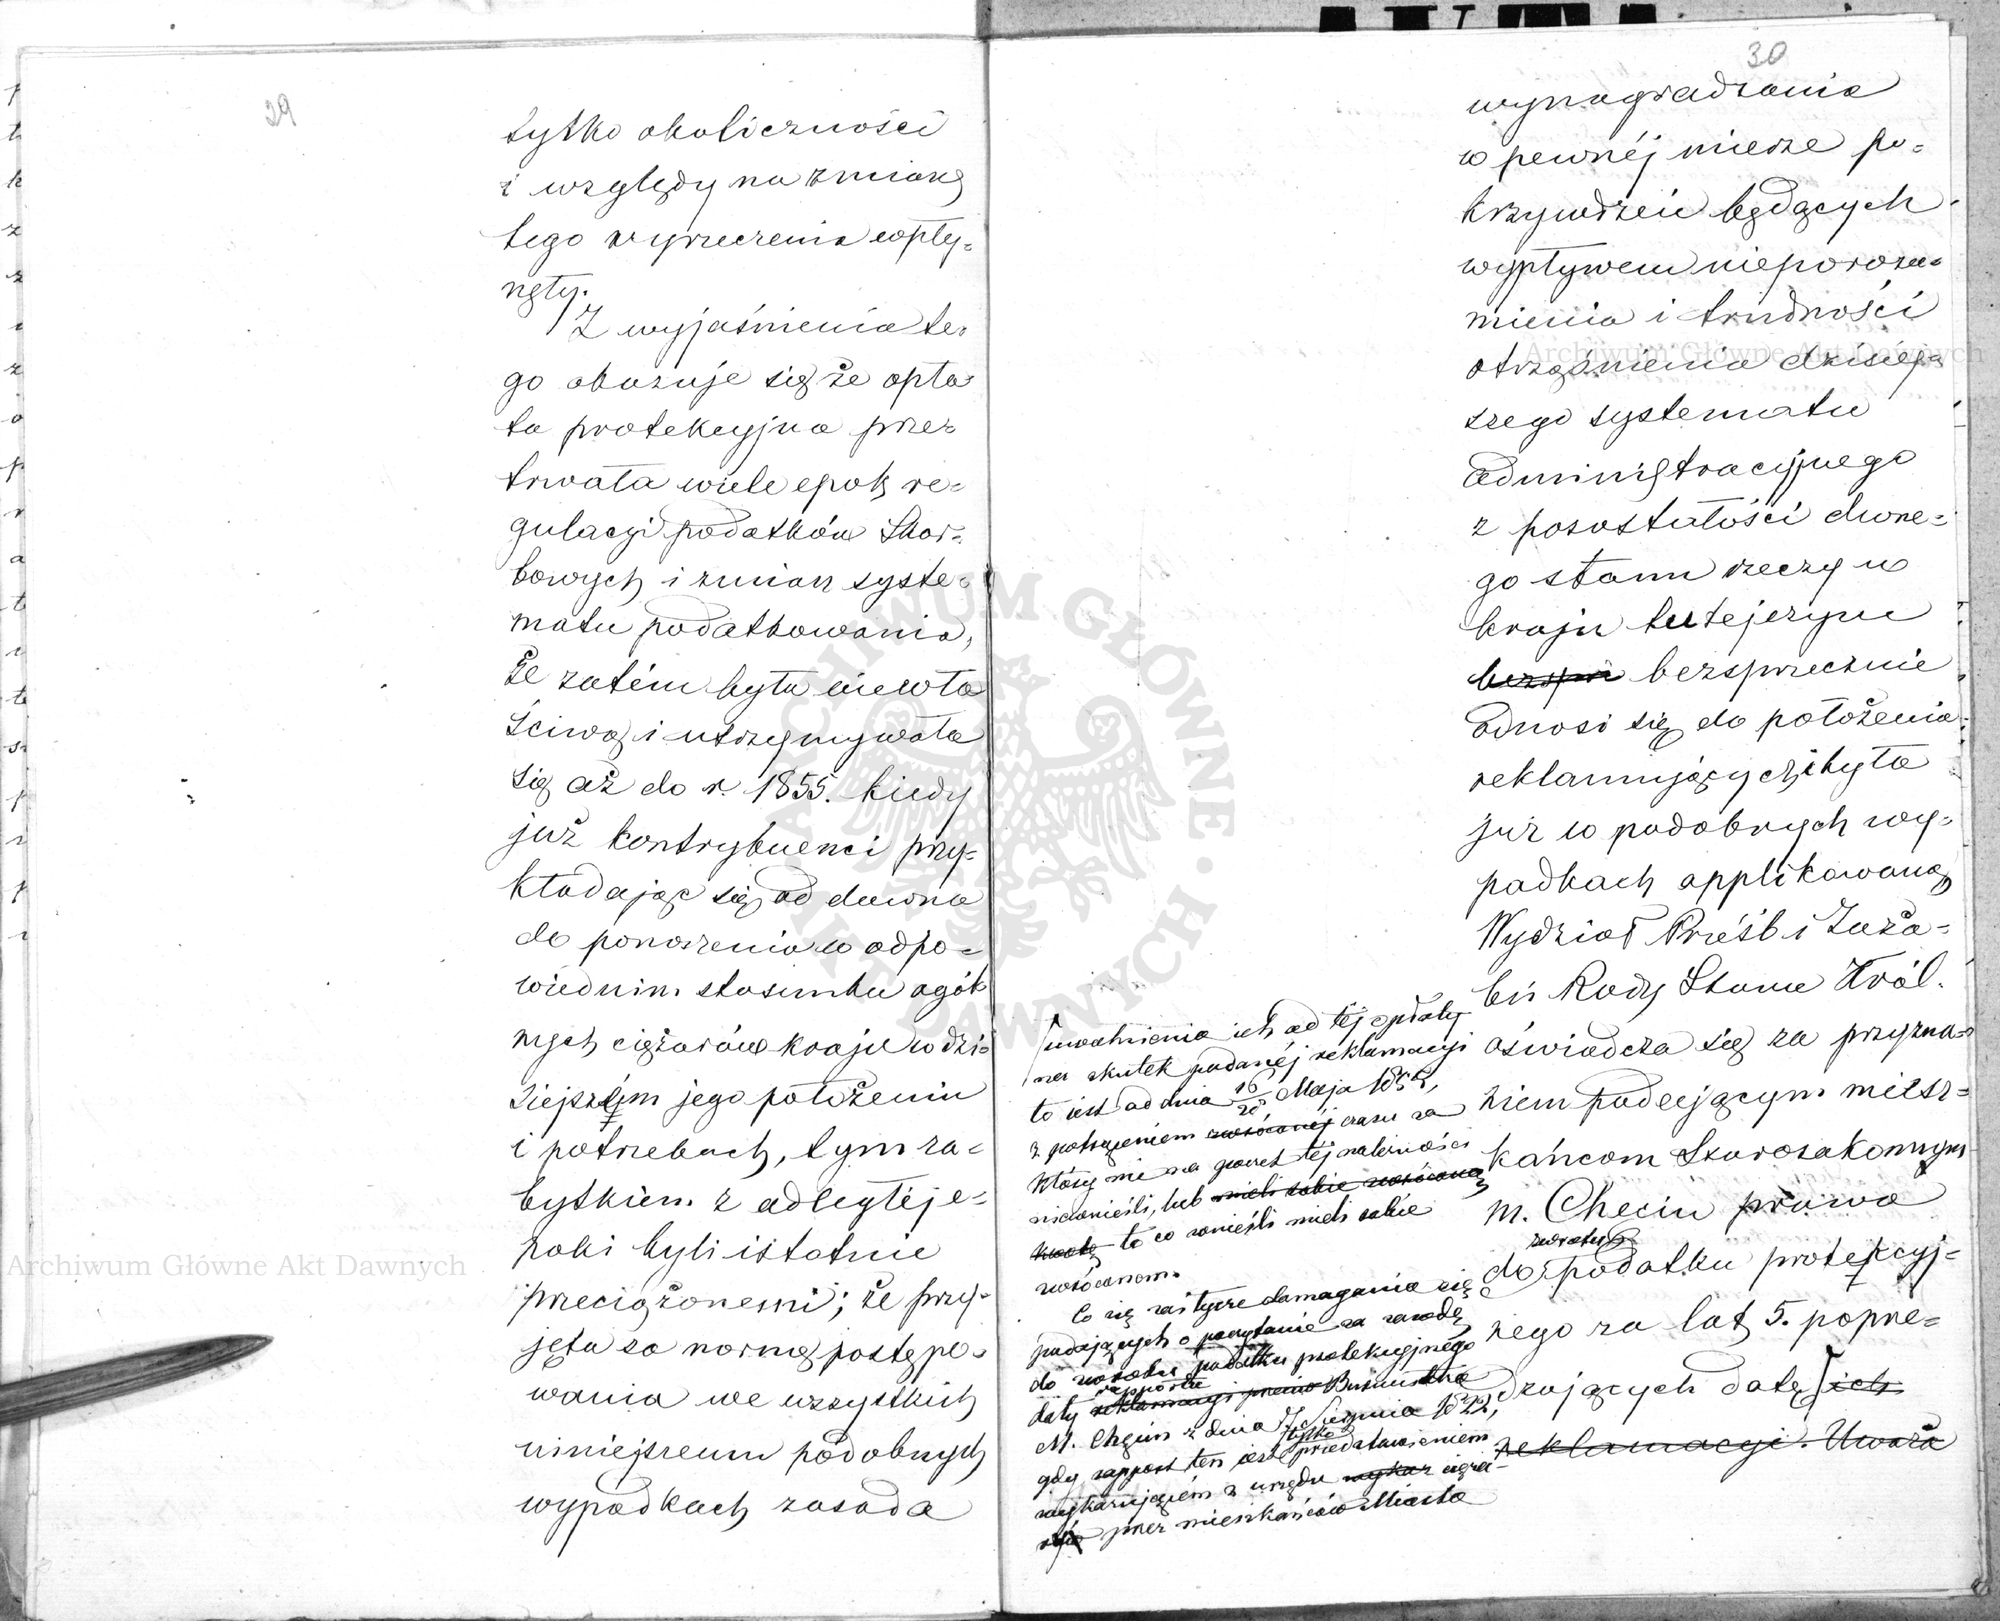 29
tylko okoliczności
i względy na zmianę
tego wyrzeczenia wpły=
nęły.
Z wyjaśnienia te=
go okazuje się że opła
ta protekcyjna prze=
trwała wiele epok re=
gulacyi podatków Skar=
bowych i zmian syste=
matu podatkowania,
że zatém była niewła
ściwą i utrzymywała
się aż do r. 1855. kiedy
już kontrybuenci przy=
kładając się od dawna
do ponoszenia w odpo=
wiednim stosunku ogól
nych ciężarów kraju w dzi=
siejszém jego położeniu
i potrzebach, tym za=
bytkiem z odległéj e=
poki byli istotnie
przeciążonemi; że przy=
jęta za normę postępo=
wania we wszystkich
niniejszemu podobnych
wypadkach zasada
30
wynagradzania
w pewnéj mierze po=
krzywdzeń będących
wypływem nieporozu=
mienia i trudności
otrząśnienia dzisiej=
szego systematu
administracyjnego
z pozostałości dawne=
go stanu rzeczy w
kraju tutejszym
bezsprz bezsprzecznie
odnosi się do położenia
reklamujących i była
już w podobnych wy=
padkach applikowaną
Wydział Próśb i Zaża=
leń Rady Stanu Król.
oświadcza się za przyzna=
niem podającym miesz=
kańcom Starozakonnym
m. Chęcin prawa
zwrotu
do podatku protekcyj=
nego za lat 5. poprze=
dzających datę ich
reklamacyi. Uważa
uwolnienia ich od téj opłaty
na skutek podanéj reklamacyi
to jest od dnia 16/28 Maja 1855,
z potrąceniem zwróconéj czasu za
który nic na poczet téj należności
niewnieśli, lub mieli sobie zwróconą
kwotę to co wnieśli mieli sobie
zwróconem.
Co się zaś tycze domagania się
podających o poczytanie za zasadę
do zwrotu podatku protekcyjnego
rapportu
daty reklamacyi przez Burmistrza
M. Chęcin z dnia 7 Sierpnia 1822,
tylko
gdy rapport ten jest przedstawieniem
wykazującém z urzędu wykaz cięża=
przez mieszkańców Miasta
Archiwum Główne Akt Dawnych
Archiwum Główne Akt Dawnych
ARCHIWUM GŁÓWNE AKT DAWNYCH